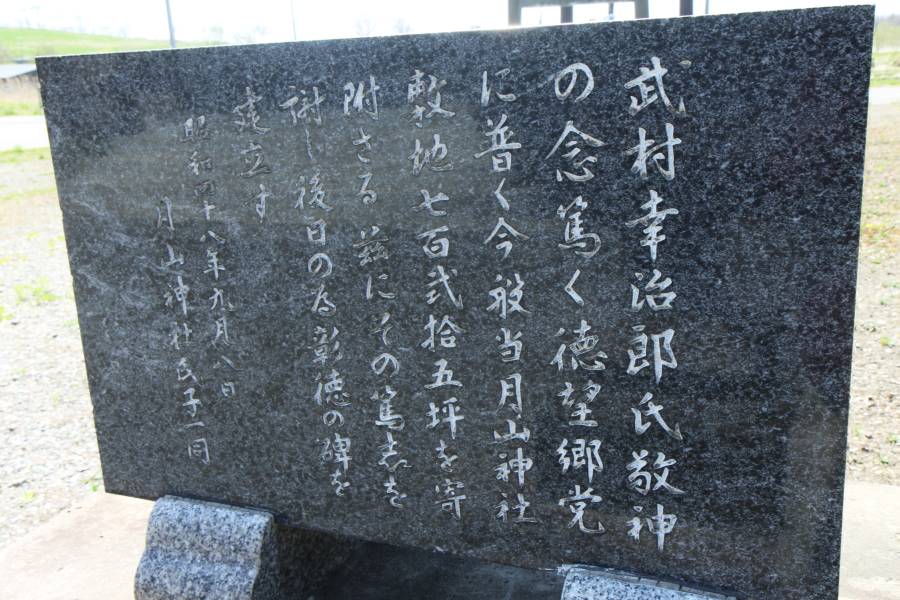 武村幸治郎氏敬神
の念篤く徳望郷党
に普く今般当月山神社
敷地七百弐拾五坪を寄
附さる茲にその篤志を
謝し後日の為彰徳の碑を
建立す
昭和四十八年九月八日
月山神社氏子一同